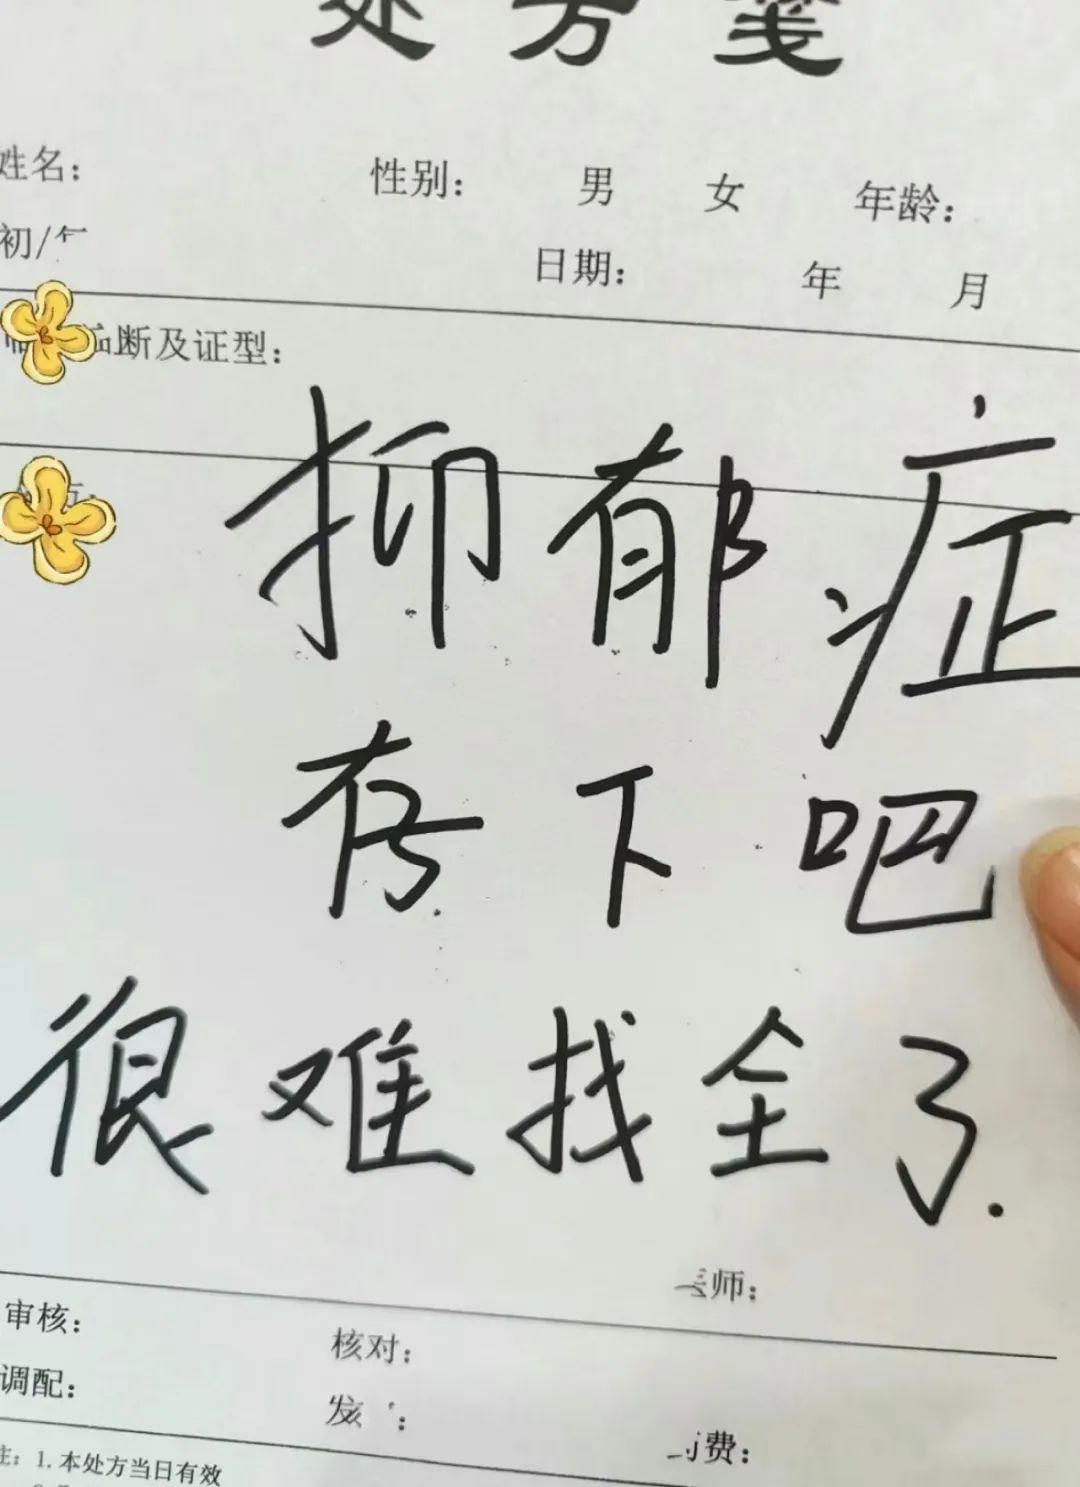 处方笺
姓名: 性别: 男 女 年龄:
初/ 日期: 年 月
断及证型:
抑郁症
存下吧
很难找全了.
师:
审核: 核对:
调配: 发 : 费:
注: 1.本处方当日有效